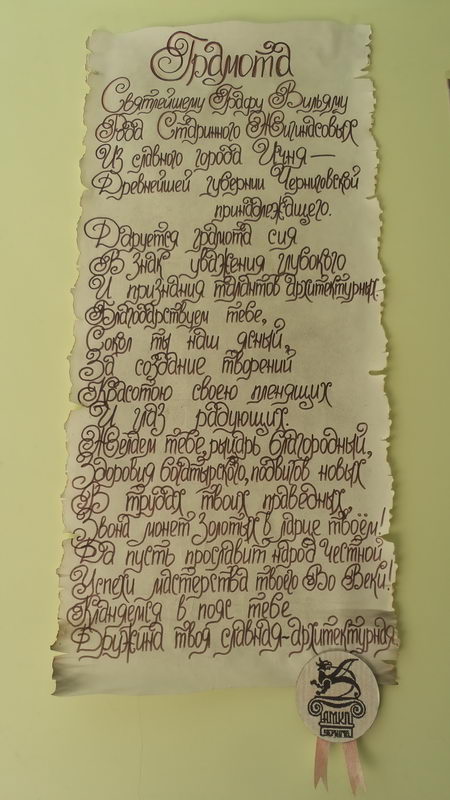 Грамота
Святлейшему Графу Вильяму
Рода Старинного Жигинасовых
Из славного города Ичня —
Древнейшей губернии Черниговской
принадлежащего.
Даруется грамота сия
В знак уважения глубокого
И признания талантов архитектурных.
Благодарствуем тебе,
Сокол ты наш ясный,
За создание творений
Красотою своею пленящих
И глаз радующих.
Желаем тебе, рыцарь благородный,
Здоровия богатырского, подвигов новых
В трудах твоих праведных,
Звона монет золотых в ларце твоём!
Да пусть прославит народ честной
Успехи мастерства твоего Во Веки!
Кланяемся в пояс тебе
Дружина твоя славная-архитектурная.
АМКП
ЧЕРНІГІВ